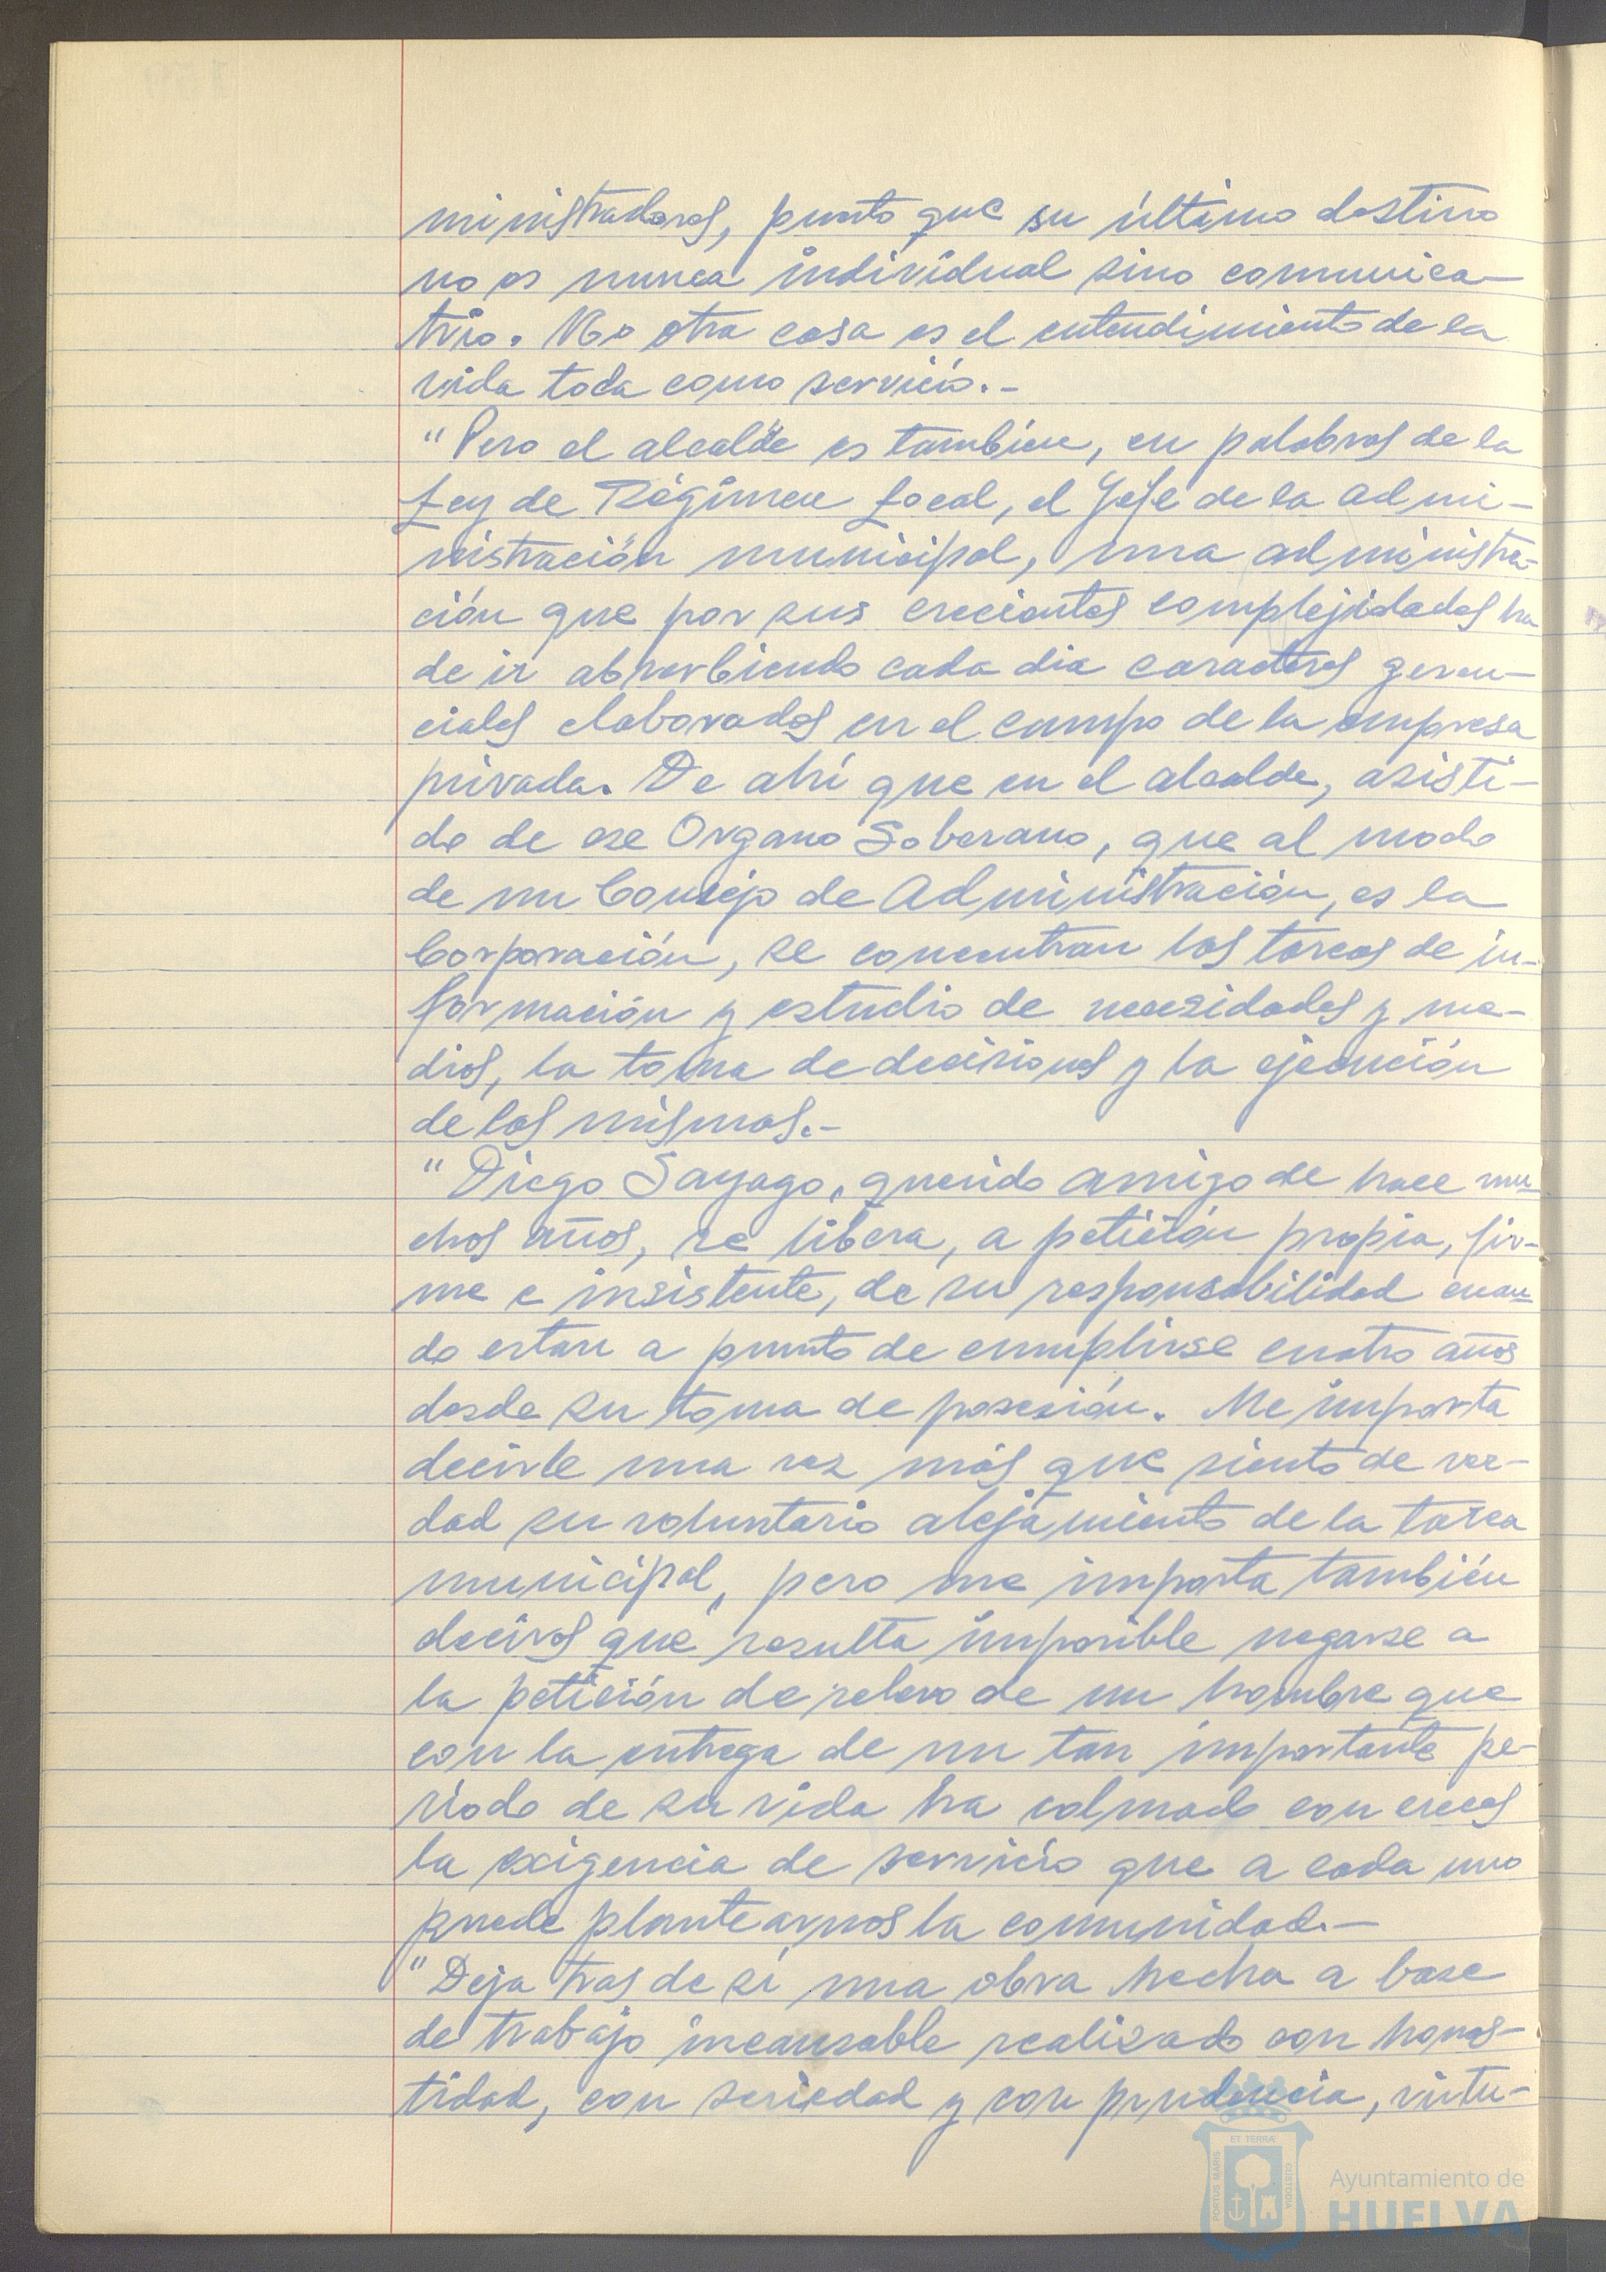 ministradores, puesto que su último destino
no es nunca individual sino comunica-
trio. No otra cosa es el entendimiento de la
vida toda como servicio.-
"Pero el alcalde es tambien, en palabras de la
Ley de Régimen Local, el Jefe de la admi-
nistración municipal, una administra-
ción que por sus crecientes complejidades ha
de ir absorbiendo cada dia caracteres geren-
ciales elaborados en el campo de la empresa
privada. De ahí que en el alcalde, asisti-
do de ese Organo Soberano, que al modo
de un Consejo de Administración, es la
Corporación, se concentran las tareas de in-
formación y estudio de necesidades y me-
dios, la toma de decisiones y la ejecución
de las mismas.-
"Diego Sayago, querido amigo de hace mu-
chos años, se libera, a petición propia, fir-
me e insistente, de su responsabilidad cuan-
do estan a punto de cumplirse cuatro años
desde su toma de posesión. Me importa
decirle una vez más que siento de ver-
dad su voluntario alejamiento de la tarea
municipal, pero me importa también
deciros que resulta imposible negarse a
la petición de relevo de un hombre que
con la entrega de un tan importante pe-
riodo de su vida ha colmado con creces
la exigencia de servicio que a cada uno
puede plantearnos la comunidad.-
"Deja tras de sí una obra hecha a base
de trabajo incansable realizado con hones-
tidad, con seriedad y con prudencia, virtu-
PORTUS MARIS ET TERRÆ CUSTODIA
Ayuntamiento de
HUELVA